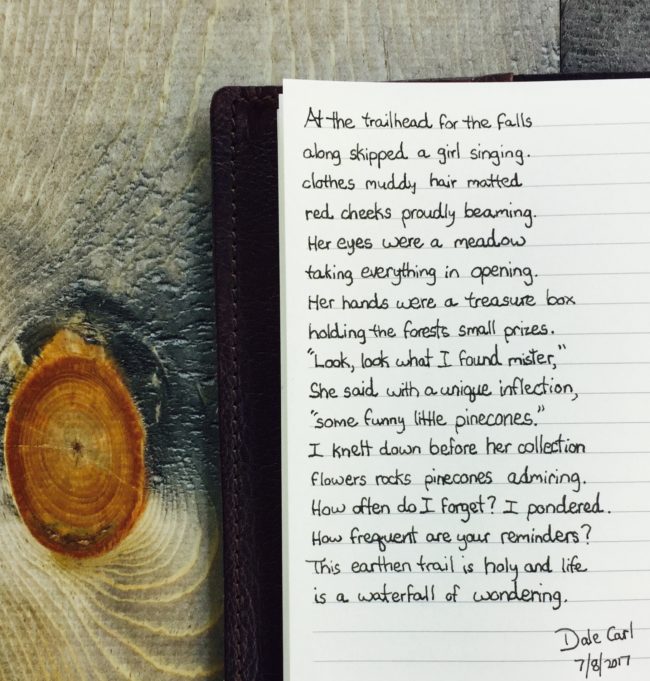 At the trailhead for the falls
along skipped a girl singing.
clothes muddy hair matted
red cheeks proudly beaming.
Her eyes were a meadow
taking everything in opening.
Her hands were a treasure box
holding the forests small prizes.
"Look, look what I found mister,"
She said with a unique inflection,
"some funny little pinecones."
I knelt down before her collection
flowers rocks pinecones admiring.
How often do I forget? I pondered.
How frequent are your reminders?
This earthen trail is holy and life
is a waterfall of wondering.
Dale Carl
7/8/2017